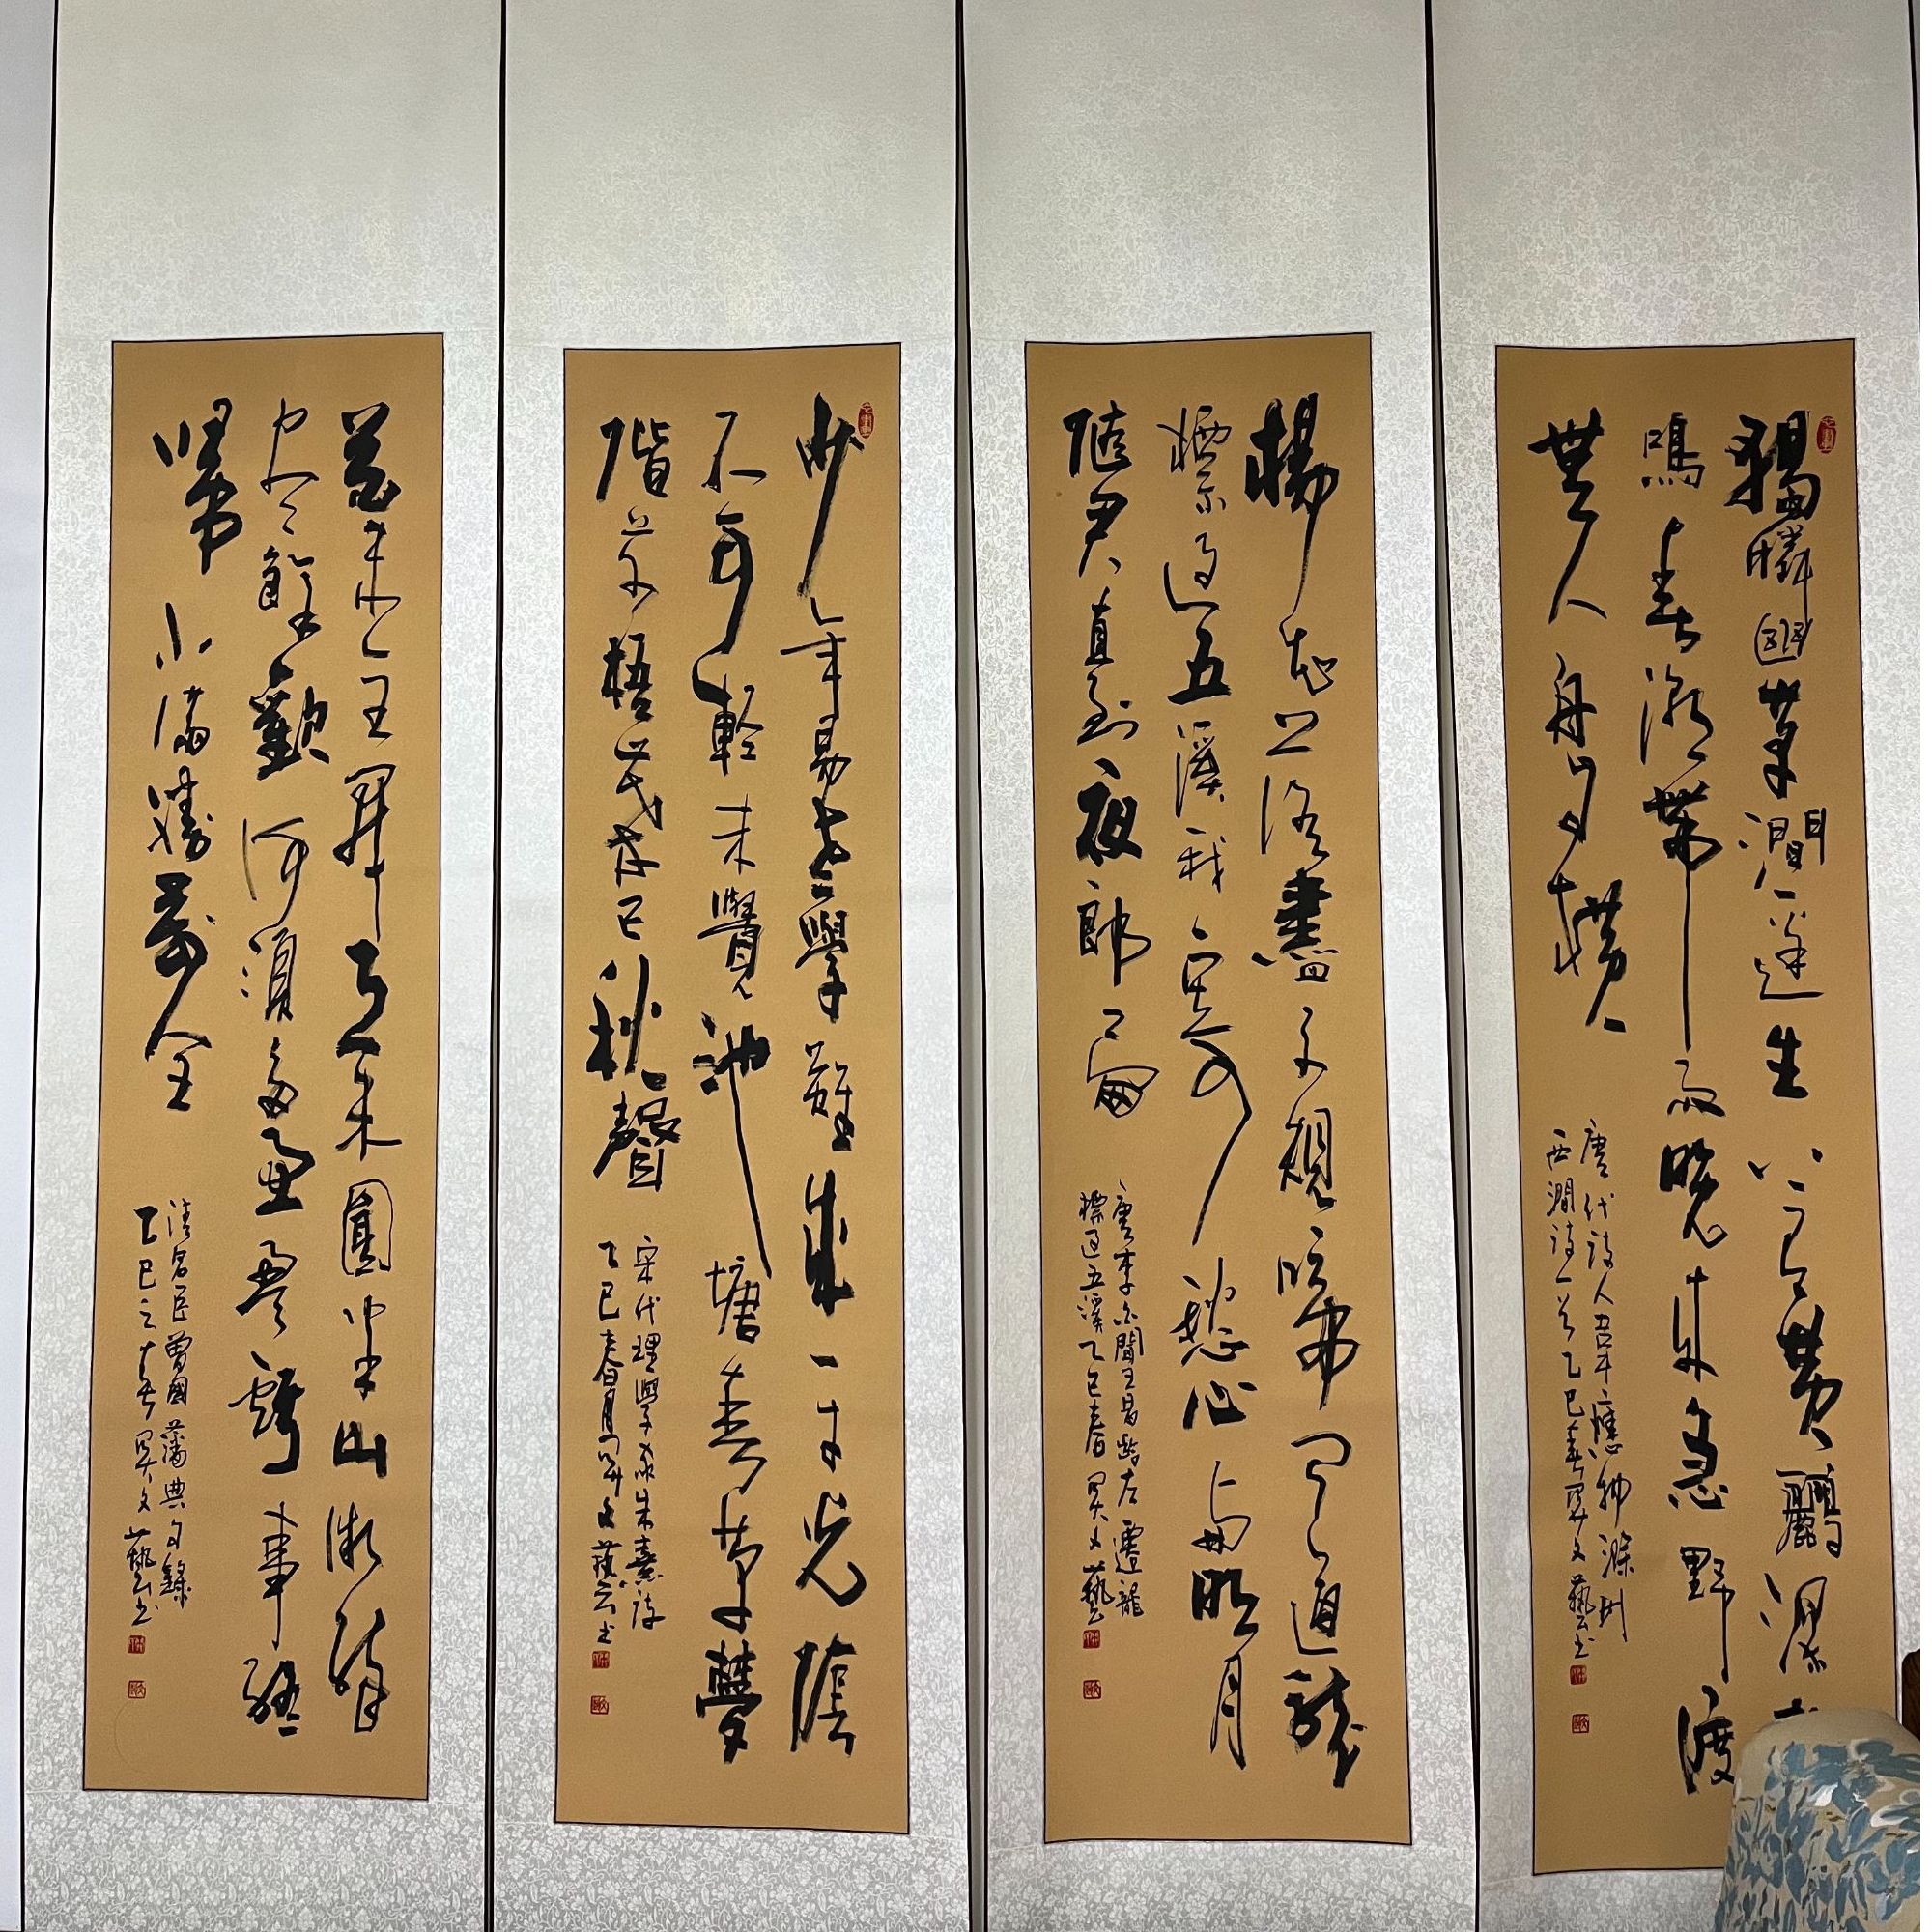 獨憐幽草澗邊生上有黃鸝深
鳴春潮帶雨晚來急野渡
無人舟自橫
唐代詩人韋應物滁州
西澗詩一首乙巳春吳文藝書
楊花落盡子規啼聞道龍
標過五溪我寄愁心與明月
隨君直到夜郎西
唐李白聞王昌齡左遷龍
標過五溪乙巳春吳文藝
少年易老學難成一寸光陰
不可輕未覺池塘春草夢
階前梧葉已秋聲
宋代理學家朱熹詩
乙巳春月吳文藝書
花未全開月未圓半山微醉
盡餘歡何須多慮盈虧事終
歸小滿勝萬全
清名臣曾國藩典句錄
乙巳之春吳文藝書